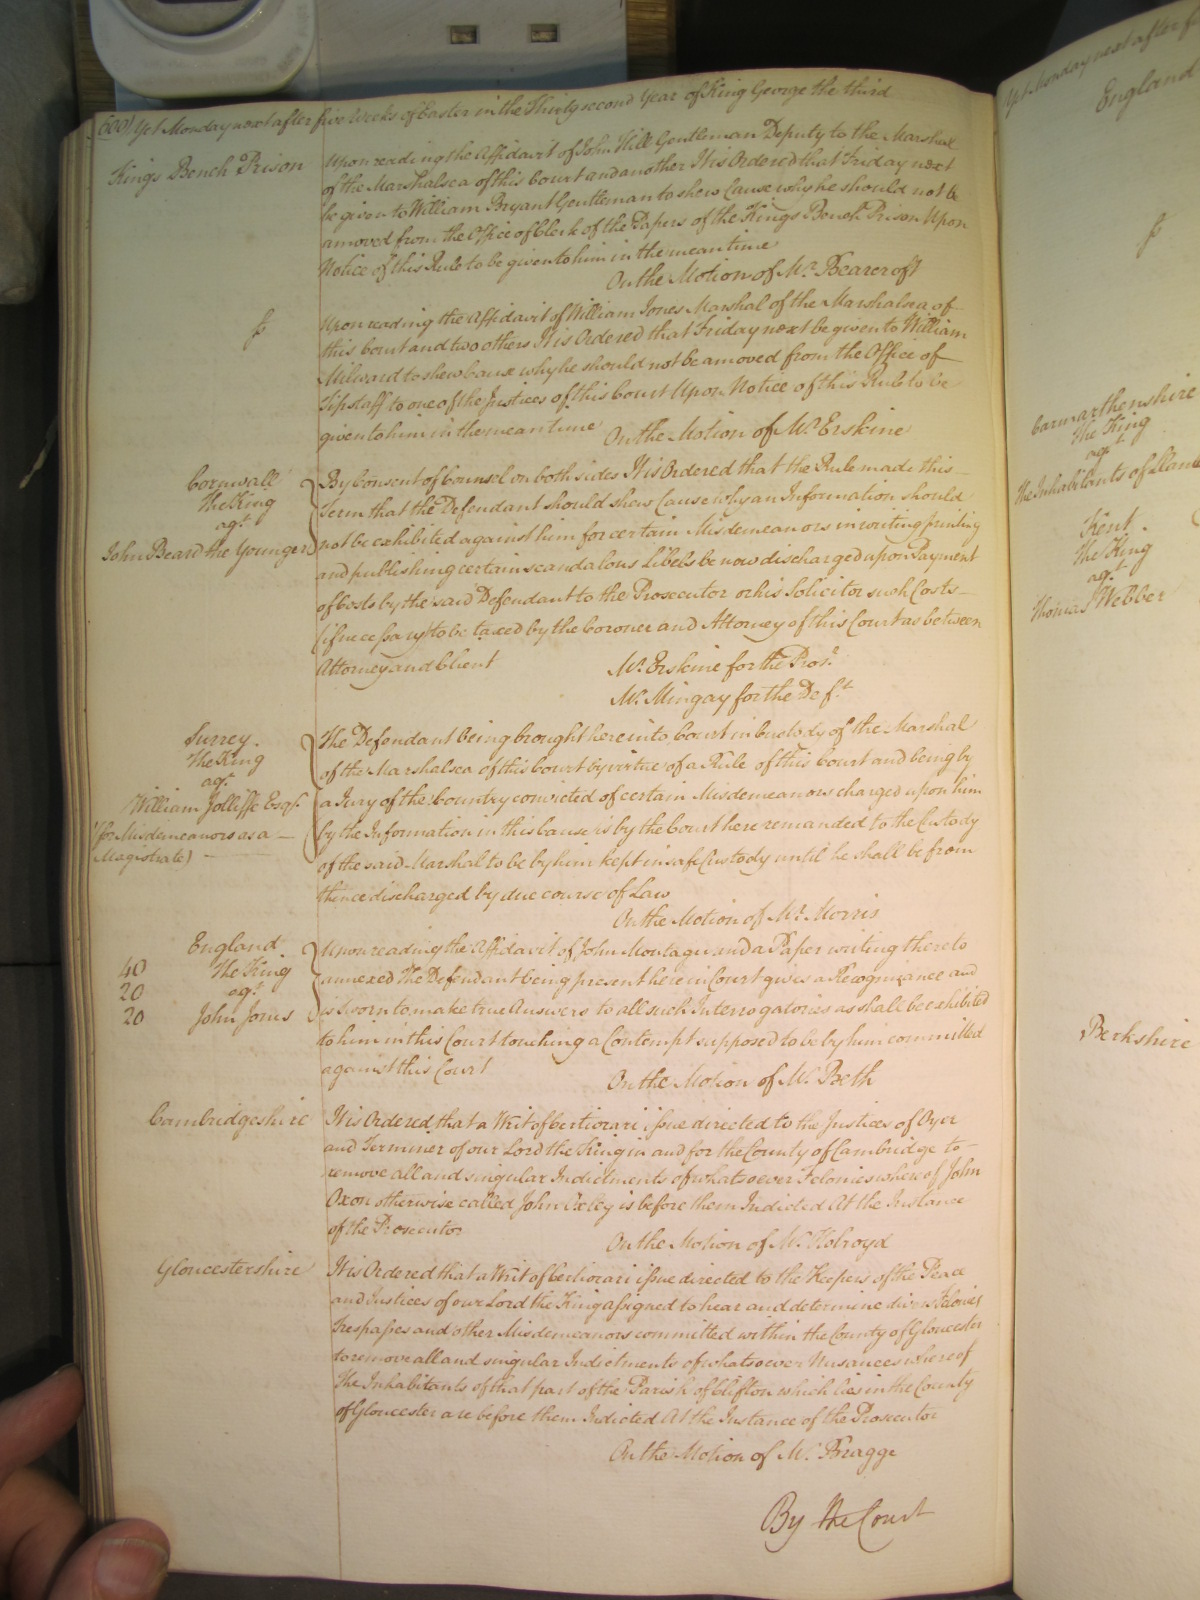 (600) Yet Monday next after five Weeks of Easter in the Thirty second Year of King George the third
Kings Bench Prison
Upon reading the Affidavit of John Hill Gentleman Deputy to the Marshal
of the Marshalsea of this Court and another It is Ordered that Friday next
be given to William Bryant Gentleman to shew Cause why he should not be
amoved from the Office of Clerk of the Papers of the Kings Bench Prison Upon
Notice of this Rule to be given to him in the mean time
On the Motion of Mr. Bearcroft
Upon reading the Affidavit of William Jones Marshal of the Marshalsea of
this Court and two others It is Ordered that Friday next be given to William
Milward to shew Cause why he should not be amoved from the Office of
Tipstaff to one of the Justices of this Court Upon Notice of this Rule to be
given to him in the mean time
On the Motion of Mr. Erskine
Cornwall
The King
agt.
John Beard the Younger
By Consent of Counsel on both sides It is Ordered that the Rule made this
Term that the Defendant should shew Cause why an Information should
not be exhibited against him for certain Misdemeanors in writing printing
and publishing certain scandalous libels be now discharged upon Payment
of Costs by the said Defendant to the Prosecutor or his Solicitor such Costs
(if necessary) to be taxed by the Coroner and Attorney of this Court as between
Attorney and Client
Mr. Erskine for the Pros.r
Mr. Mingay for the Def.t
Surrey.
The King
agt.
William Jolliffe Esqr.
(for Misdemeanors as a
Magistrate)
The Defendant being brought here into Court in Custody of the Marshal
of the Marshalsea of this Court by virtue of a Rule of this Court and being by
a Jury of the Country convicted of certain Misdemeanors charged upon him
by the Information in this Cause is by the Court here remanded to the Custody
of the said Marshal to be by him kept in safe Custody until he shall be from
thence discharged by due course of Law
On the Motion of Mr. Morris
England
40 The King
20 agt.
20 John Jones
Upon reading the Affidavit of John Montagu and a Paper writing thereto
annexed The Defendant being present here in Court gives a Recognizance and
is Sworn to make true Answers to all such Interrogatories as shall be exhibited
to him in this Court touching a Contempt supposed to be by him committed
against this Court
On the Motion of Mr. Beth
Cambridgeshire
It is Ordered that a Writ of Certiorari issue directed to the Justices of Oyer
and Terminer of our Lord the King in and for the County of Cambridge to
remove all and singular Indictments of whatsoever Felonies whereof John
Oxon otherwise called John Oxley is before them Indicted At the Instance
of the Prosecutor
On the Motion of Mr. Holroyd
Gloucestershire
It is Ordered that a Writ of Certiorari issue directed to the Keepers of the Peace
and Justices of our Lord the King assigned to hear and determine divers Felonies
Trespasses and other Misdemeanors committed within the County of Gloucester
to remove all and singular Indictments of whatsoever Nusances whereof
The Inhabitants of that part of the Parish of Clifton which lies in the County
of Gloucester are before them Indicted At the Instance of the Prosecutor
On the Motion of Mr. Bragge
By the Court
Yet Monday next after
England
Carmarthenshire
The King
agt.
The Inhabitants of
Kent
The King
agt.
Thomas Webber
Berkshire